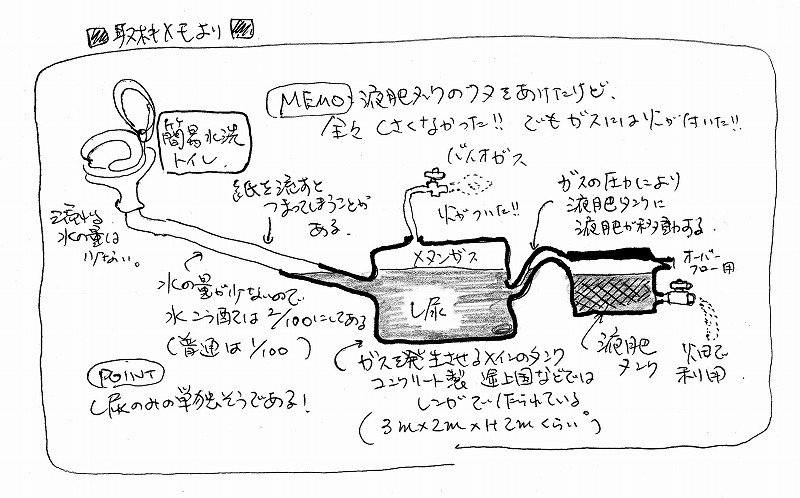 取材メモより
MEMO 液肥タンクのフタをあけたけど、
全々くさくなかった!! でもガスには火が付いた!!
簡易水洗
トイレ.
バイオガス
火がついた!!
ガスの圧力により
液肥タンクに
液肥が移動する.
紙を流すと
つまってしまうことが
ある.
流れる
水の量は
少ない。
メタンガス
し尿
オーバー
フロー用
水の量が少ないので
水こう配は 2/100にしてある
(普通は 1/100)
液肥
タンク
畑で
利用
POINT
し尿のみの単独そうである!
ガスを発生させるメインのタンク
コンクリート製 途上国などでは
レンガで作られている
(3m×2m×H2mくらい。)